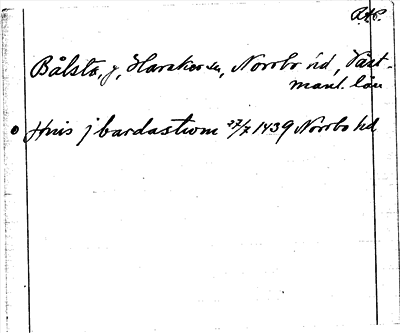 RAP.
Bålsta, g, Haraker sn, Norrbo hd, Väst-
manl. län
Huis j bardastwom 27/7 1439 Norrbo hd